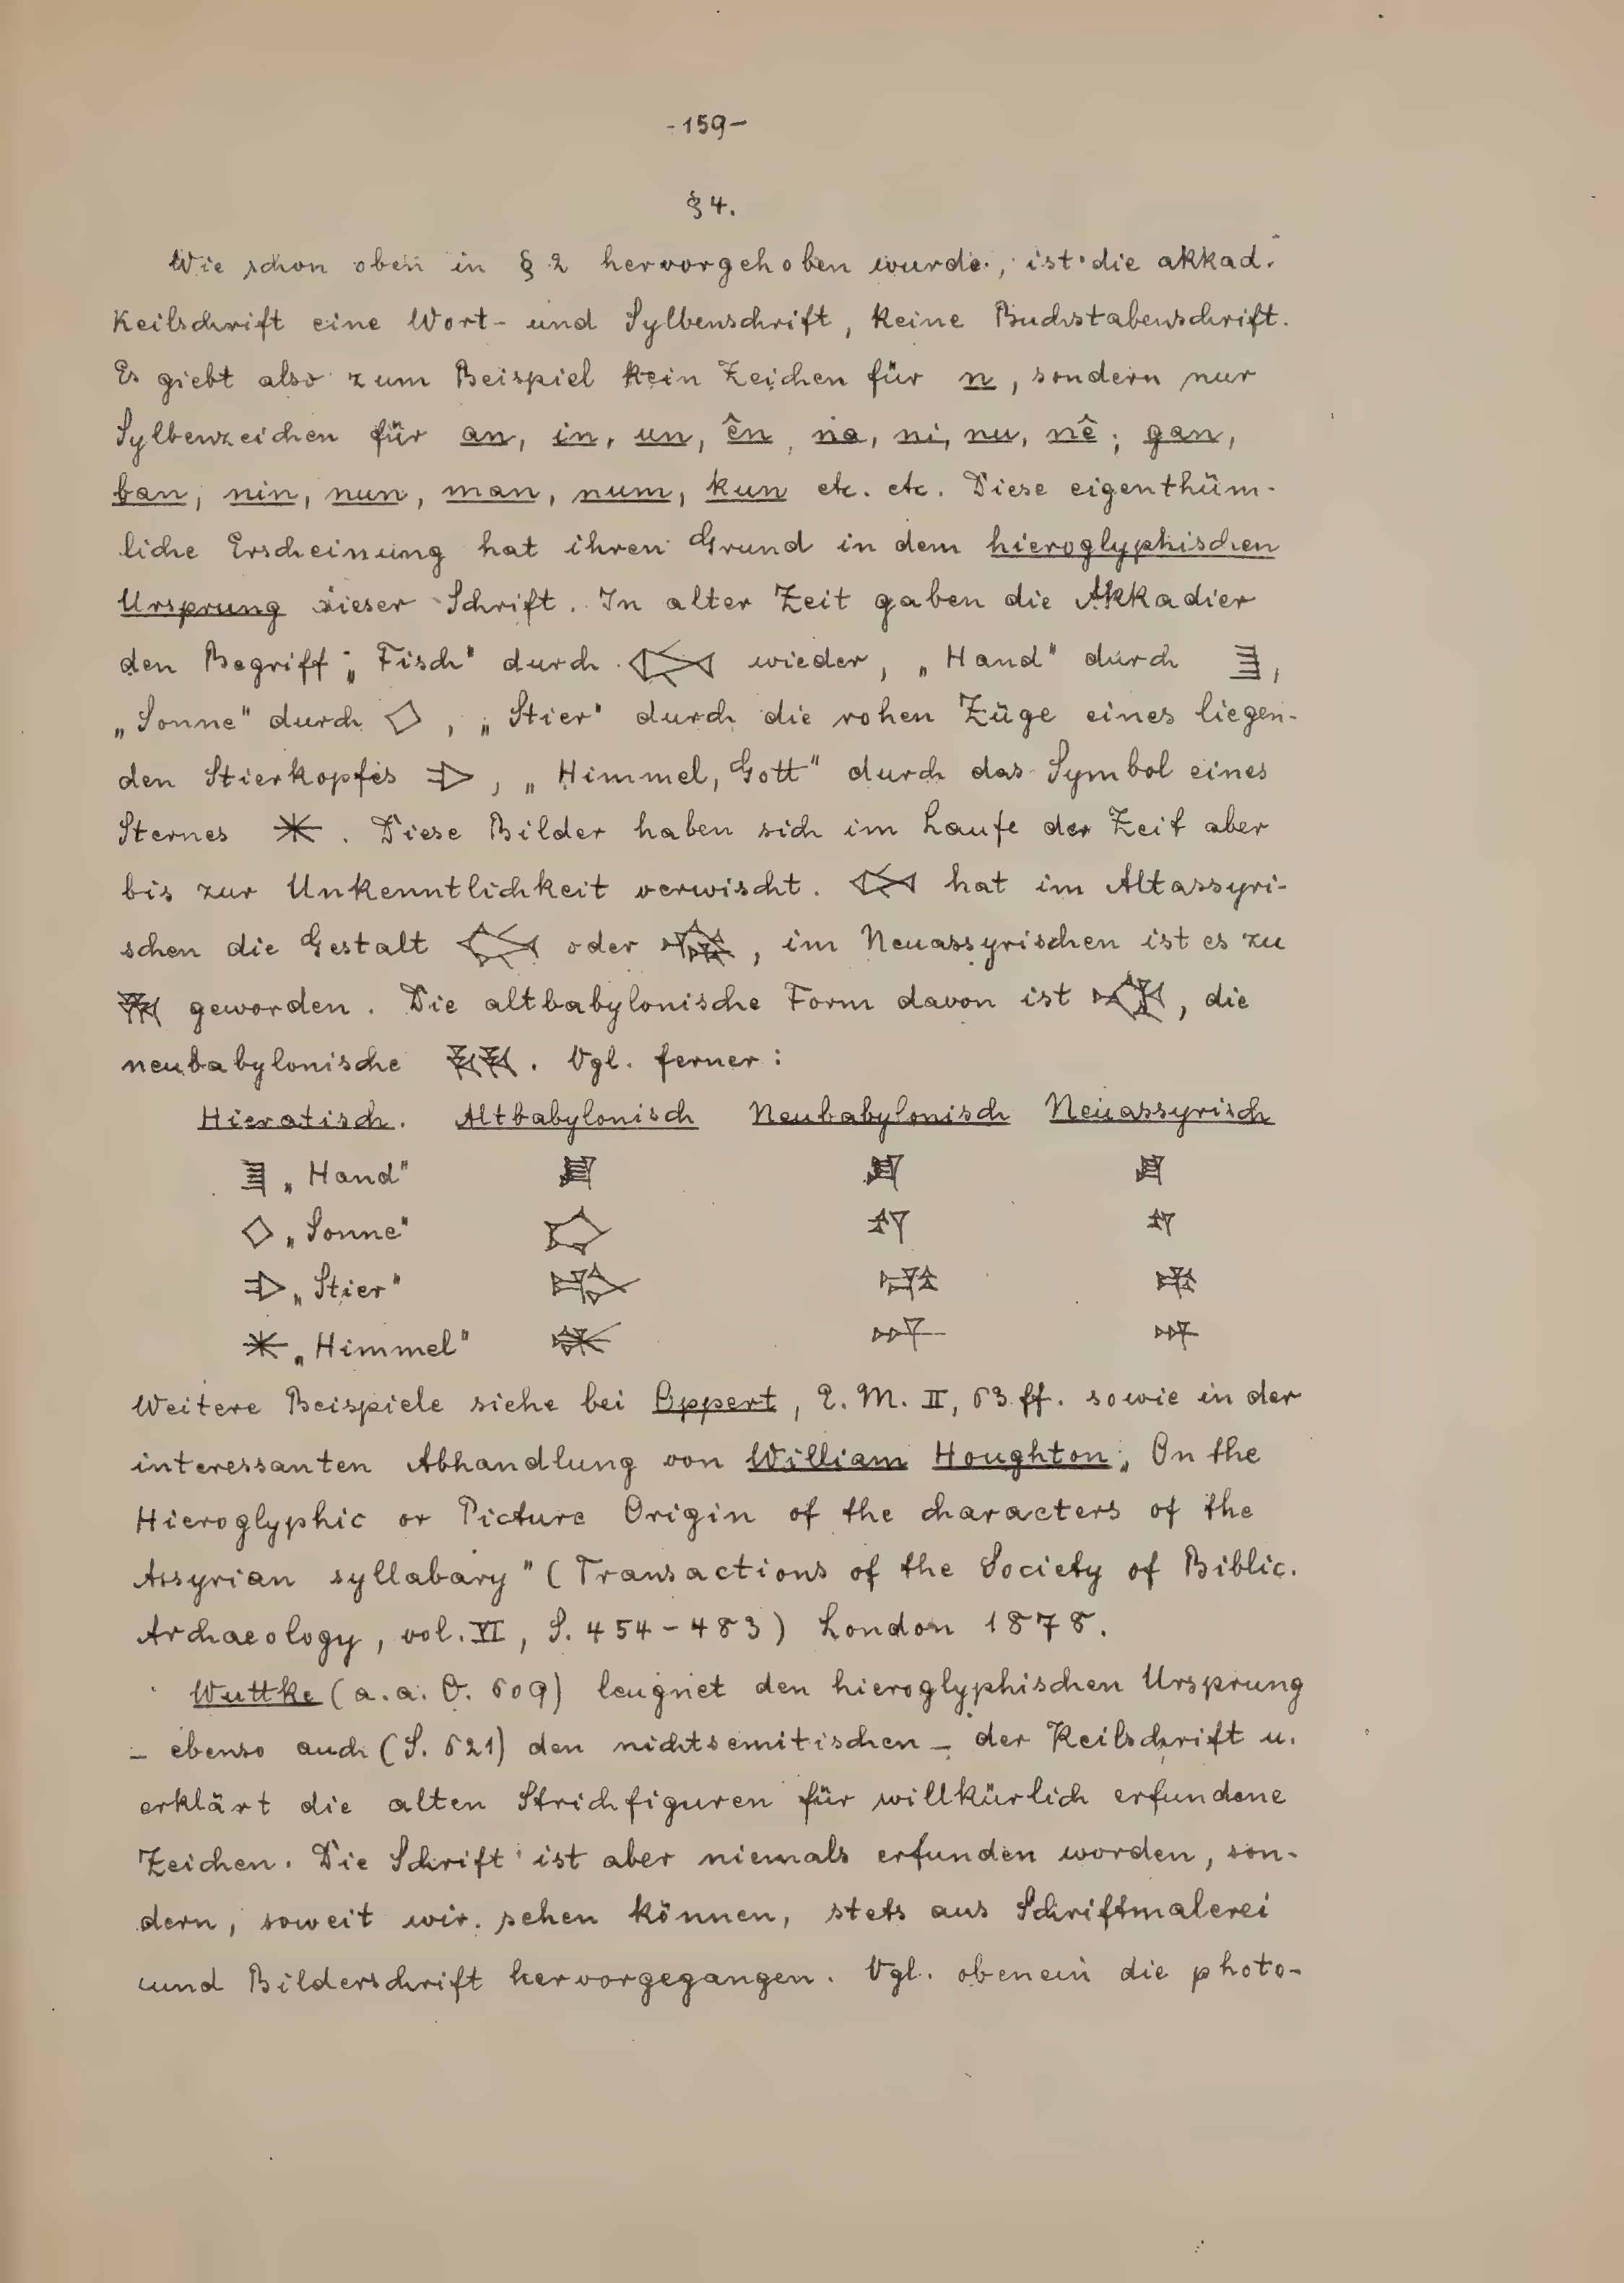 -159-
§ 4.
Wie schon oben in § 2 hervorgehoben wurde, ist die akkad.
Keilschrift eine Wort- und Sylbenschrift, keine Buchstabenschrift.
Es giebt also zum Beispiel kein Zeichen für n, sondern nur
Sylbenzeichen für an, in, un, ên, na, ni, nu, nê; gan,
ban, nin, nun, man, num, kun etc. etc. Diese eigenthüm-
liche Erscheinung hat ihren Grund in dem hieroglyphischen
Ursprung dieser Schrift. In alter Zeit gaben die Akkadier
den Begriff „Fisch" durch wieder, „Hand" durch ,
„Sonne" durch , „Stier" durch die rohen Züge eines liegen-
den Stierkopfes , „Himmel, Gott" durch das Symbol eines
Sternes . Diese Bilder haben sich im Laufe der Zeit aber
bis zur Unkenntlichkeit verwischt. hat im Altassyri-
schen die Gestalt oder , im Neuassyrischen ist es zu
geworden. Die altbabylonische Form davon ist , die
neubabylonische . Vgl. ferner:
Hieratisch. Altbabylonisch Neubabylonisch Neuassyrisch
„Hand"
„Sonne"
„Stier"
„Himmel"
Weitere Beispiele siehe bei Oppert, E. M. II, 63 ff. sowie in der
interessanten Abhandlung von William Houghton „On the
Hieroglyphic or Picture Origin of the characters of the
Assyrian syllabary" (Transactions of the Society of Biblic.
Archaeology, vol. VI, S. 454-483) London 1878.
Wuttke (a. a. O. 609) leugnet den hieroglyphischen Ursprung
– ebenso auch (S. 621) den nichtsemitischen – der Keilschrift u.
erklärt die alten Strichfiguren für willkürlich erfundene
Zeichen. Die Schrift ist aber niemals erfunden worden, son-
dern, soweit wir sehen können, stets aus Schriftmalerei
und Bilderschrift hervorgegangen. Vgl. obenein die photo-